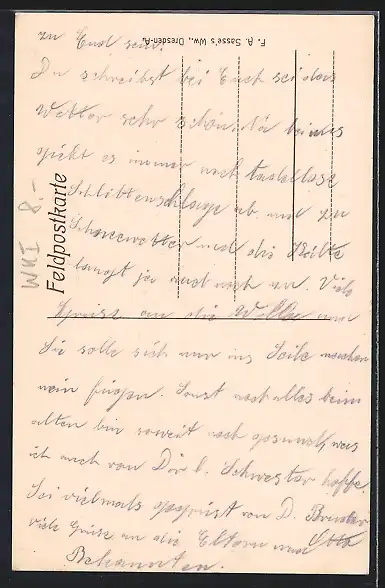 zu End sein.
Du schreibst bei Euch sei das
Wetter sehr schön. Na bei uns
giebt es immer noch tadellose
Schlitten ab und zu
Schneewetter und die Kälte
langt ja auch noch zu. Viele
Grüsse an die und
Sie solle sich nur ins machen
nein fügen. Sonst noch alles beim
alten bin soweit noch gesund, was
ich auch von Dir l. Schwester hoffe.
Sei vielmals gegrüsst von D. Bruder
Viele Grüsse an die Eltern und Otto
Bekannten.
F. A. Sasse's Ww., Dresden-A.
Feldpostkarte
WKI 8.-